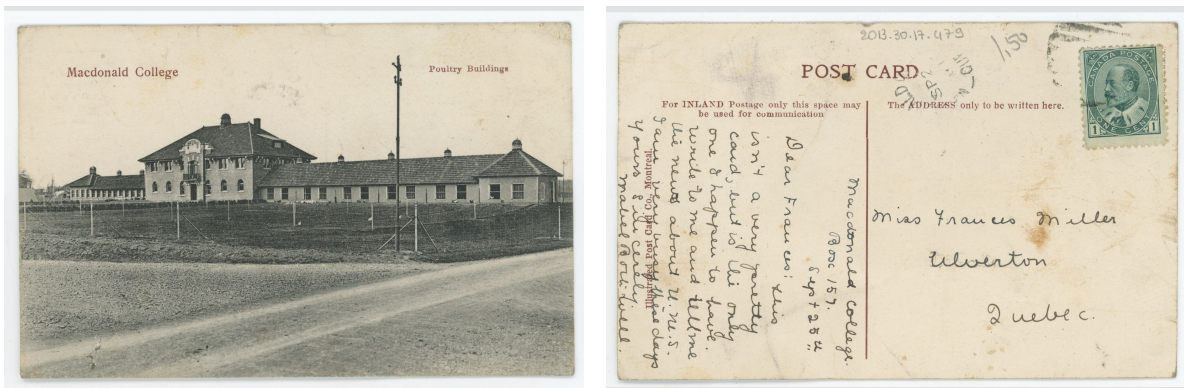 Macdonald College
Poultry Buildings
2013.30.17.479
1.50
POST CARD
SP 2
CANADA POSTAGE
1 ONE CENT 1
For INLAND Postage only this space may
be used for communication
The ADDRESS only to be written here.
Illustrated Post Card Co., Montreal.
Macdonald College.
Box 157.
Sept 28th
Dear Frances: This
isn't a very pretty
card, but is the only
one I happen to have.
Write to me and tell me
the news about U.M.S.
I am very busy these days
Yours sincerely.
Mabel
Miss Frances Miller
Ulverton
Quebec.